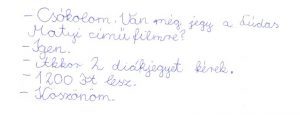 - Csókolom. Van még jegy a Lúdas
Matyi című filmre?
- Igen.
- Akkor 2 diákjegyet kérek.
- 1200 Ft lesz.
- Köszönöm.